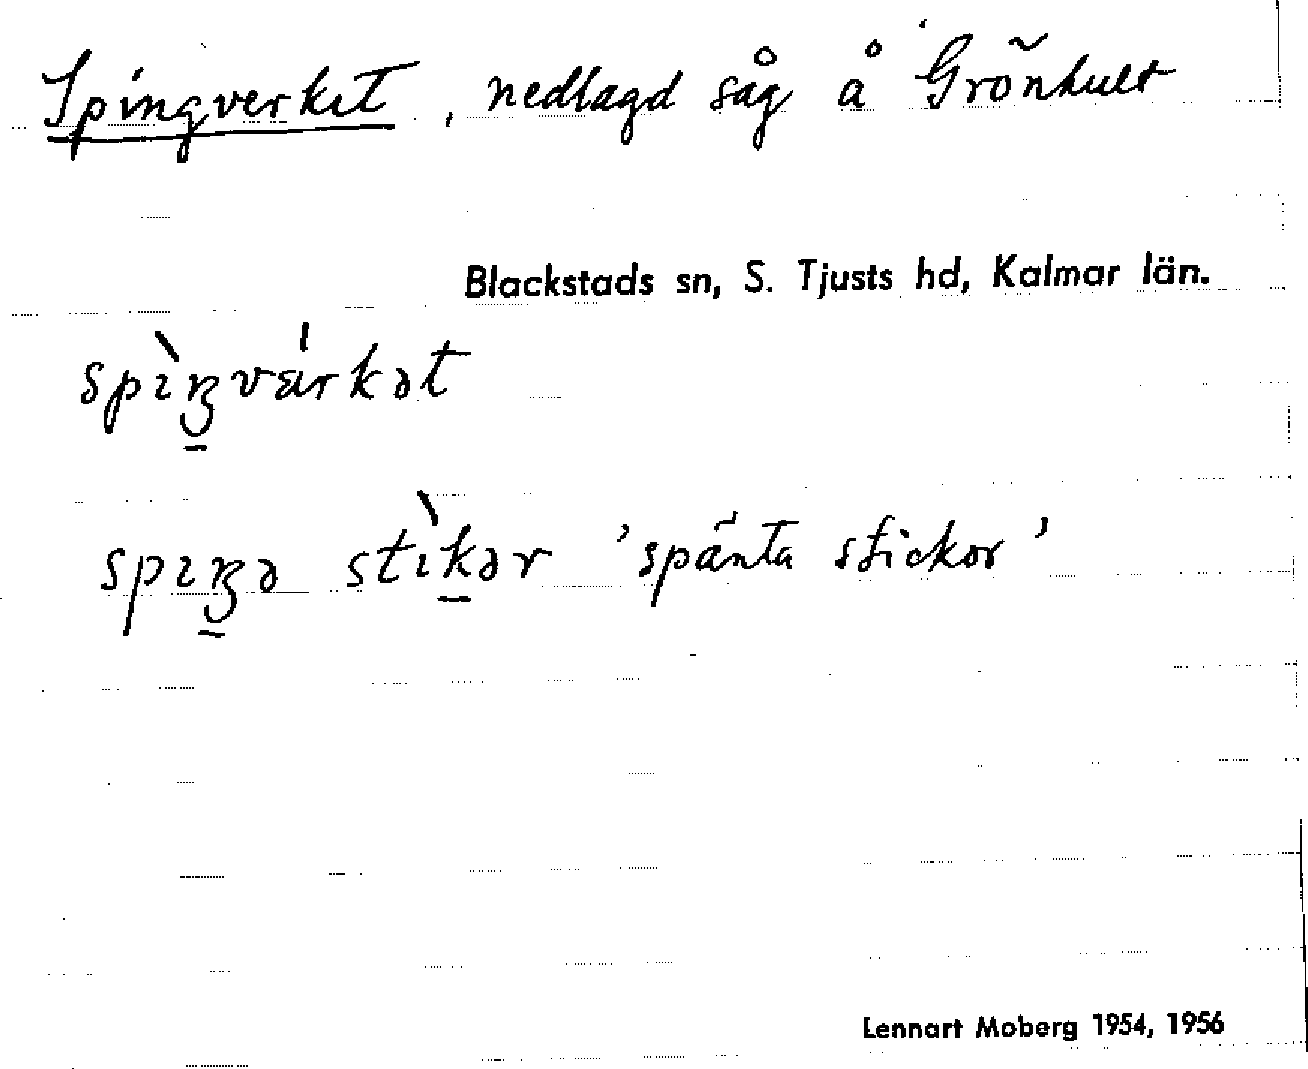 Spingverket, nedlagd såg å Grönhult
Blackstads sn, S. Tjusts hd, Kalmar län.
spɪ̀ŋvǽrkət
spɪŋə stɪ̀kər 'spänta stickor'
Lennart Moberg 1954, 1956